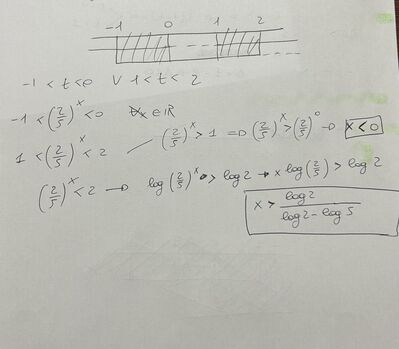 -1 0 1 2
-1 < t < 0 ∨ 1 < t < 2
-1 < (2/5)^x < 0 ∄x ∈ ℝ
1 < (2/5)^x < 2 (2/5)^x > 1 => (2/5)^x > (2/5)^0 -> x < 0
(2/5)^x < 2 -> log(2/5)^x > log 2 -> x log(2/5) > log 2
x > log 2 / (log 2 - log 5)